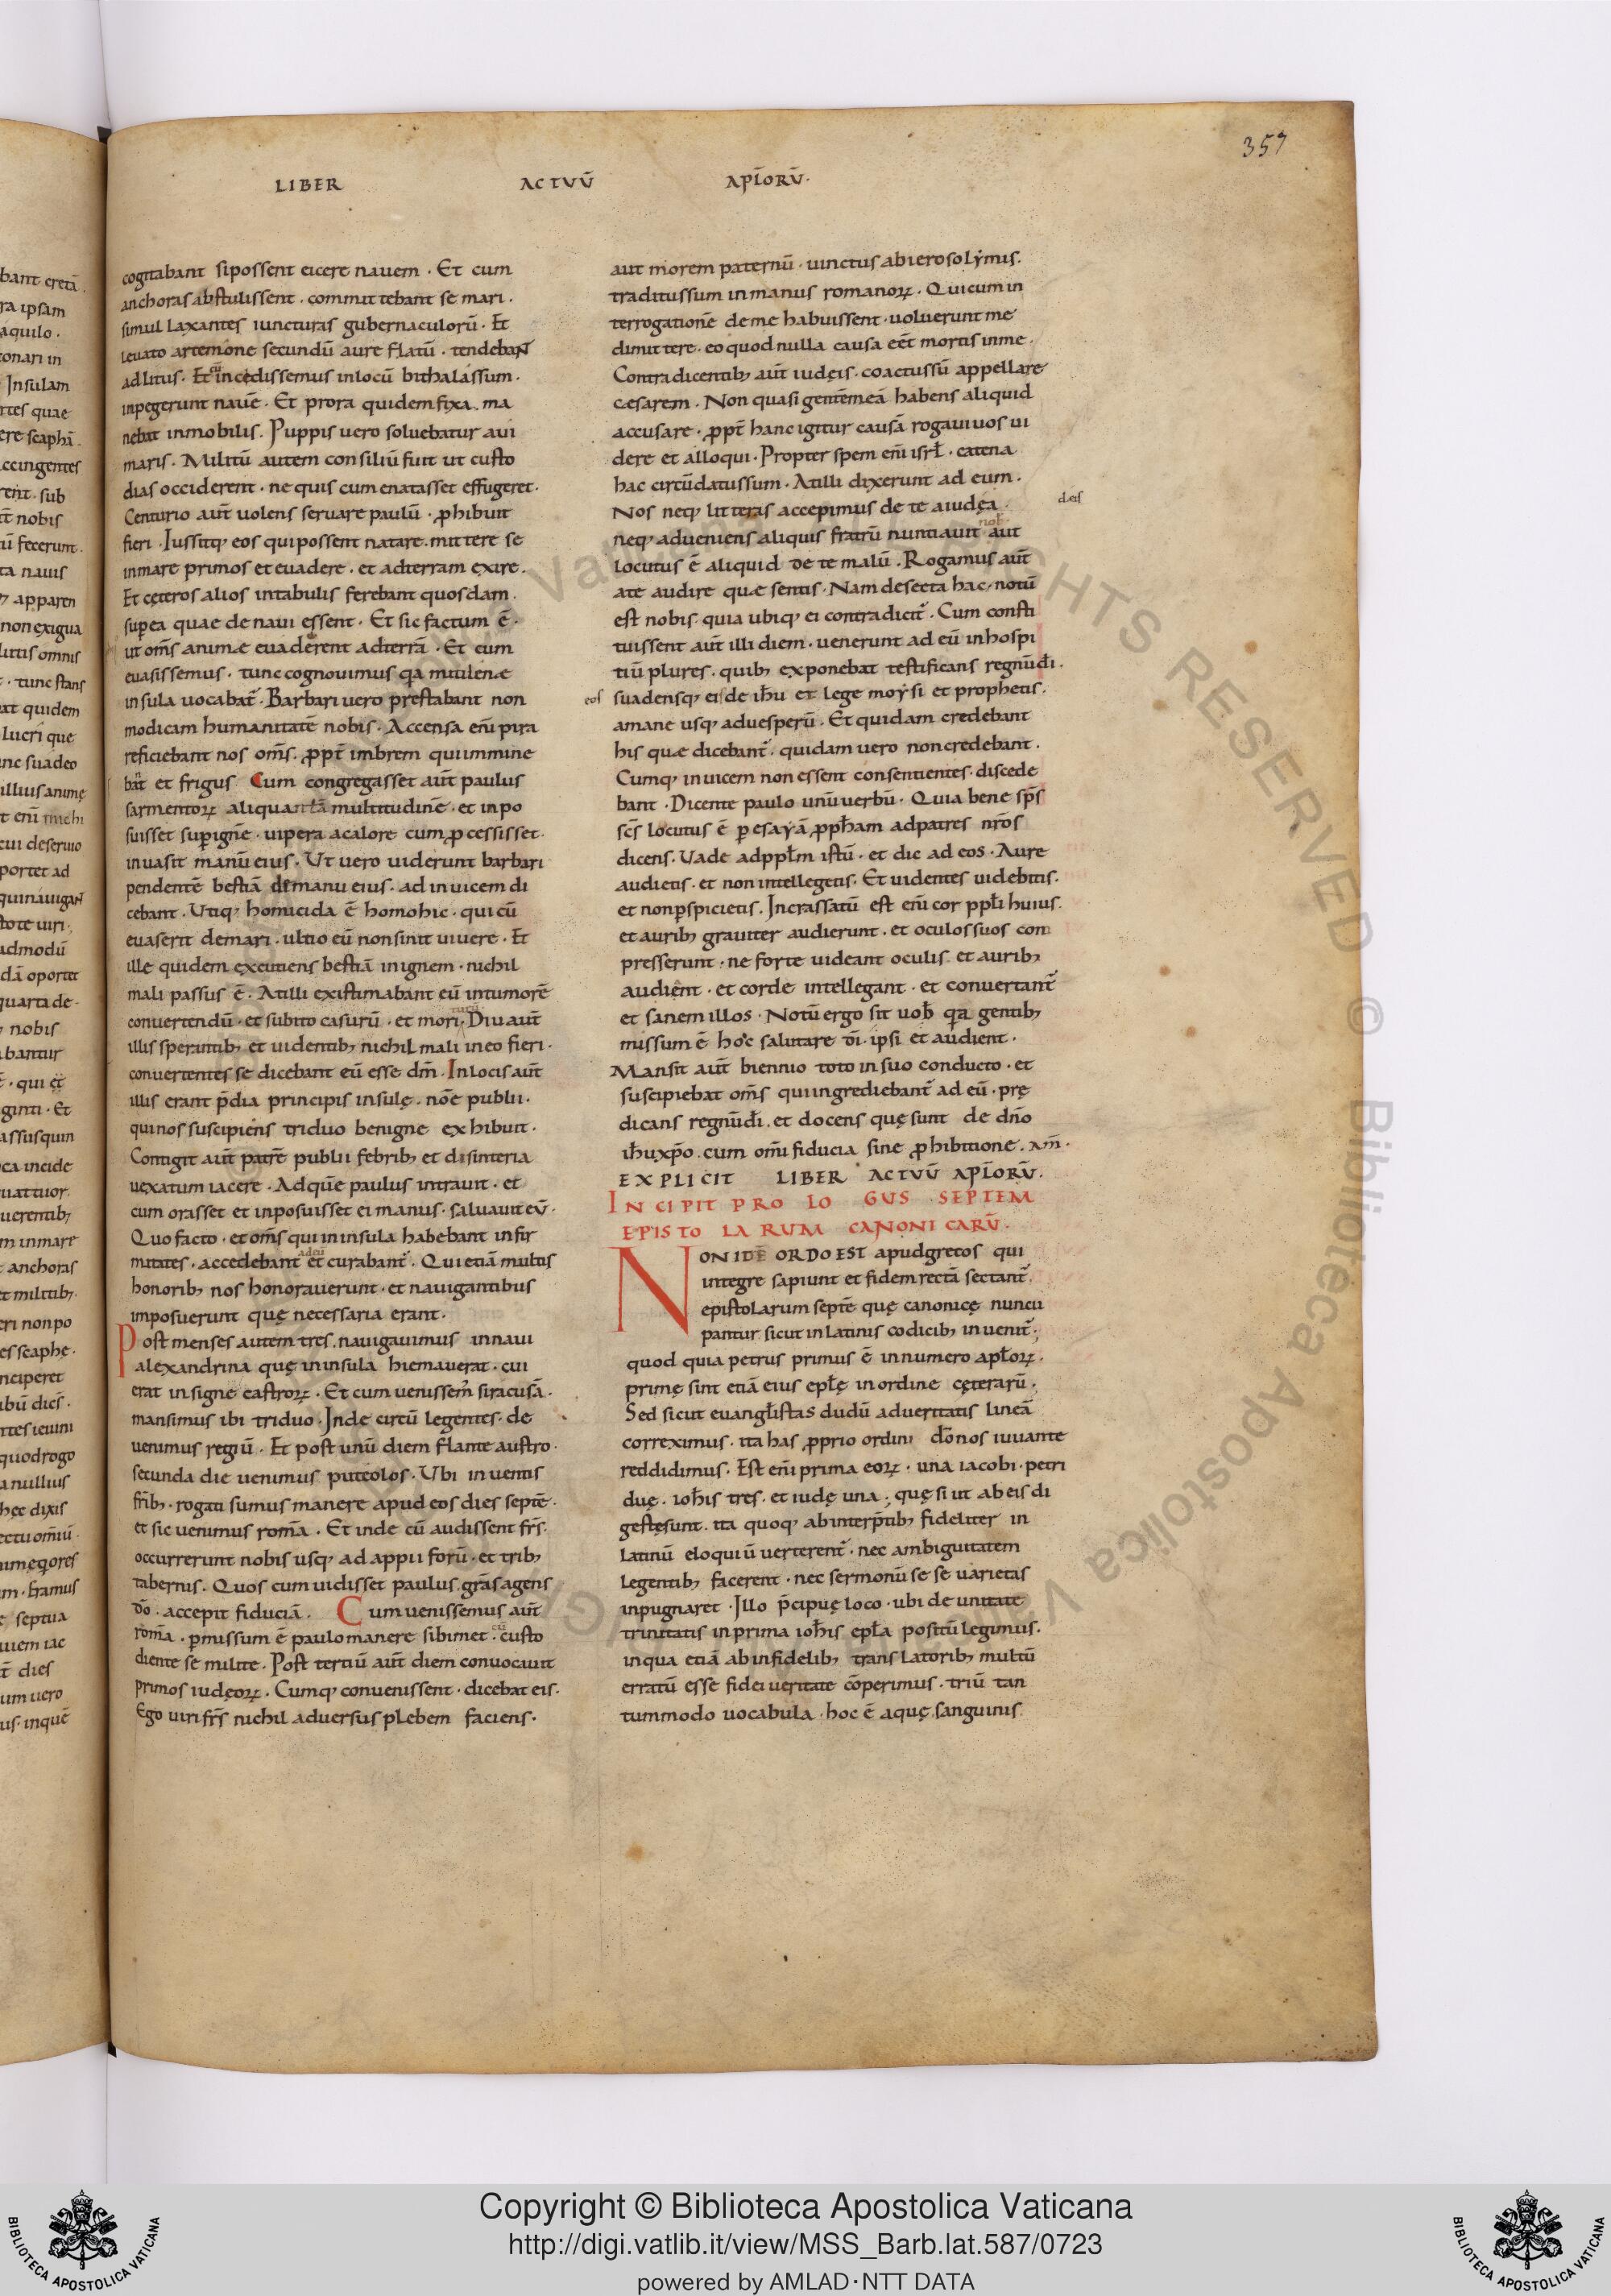 357
LIBER ACTVŪ APL̄ORŪ.
cogitabant si possent eicere nauem. Et cum
anchoras abstulissent. committebant se mari.
simul laxantes iuncturas gubernaculorū. Et
leuato artemone secundū aure flatū. tendebant
ad litus. Et cū incedissemus in locū bithalassum.
inpegerunt nauē. Et prora quidem fixa. ma
nebat inmobilis. Puppis uero soluebatur a ui
maris. Militū autem consiliū fuit ut custo
dias occiderent. ne quis cum enatasset effugeret.
Centurio aūt uolens seruare paulū. ꝓhibuit
fieri. Iussitq; eos qui possent natare. mittere se
in mare primos et euadere. et ad terram exire.
Et cęteros alios in tabulis ferebant quosdam.
sup ea quae de naui essent. Et sic factum ē.
ut om̄s animæ euaderent ad terrā. Et cum
euasissemus. tunc cognouimus qa mitilenæ
insula uocabat̄. Barbari uero prestabant non
modicam humanitatē nobis. Accensa eni pira
reficiebant nos om̄s. ꝓpt̄ imbrem qui immine
bat et frigus Cum congregasset aūt paulus
sarmentoꝝ aliquantā multitudinē. et inpo
suisset sup ignē. uipera a calore cum ꝓcessisset.
inuasit manū eius. Ut uero uiderunt barbari
pendentē bestiā de manu eius. ad inuicem di
cebant. Utiq; homicida ē homo hic. qui cū
euaserit de mari. ultio eū non sinit uiuere. Et
ille quidem excutiens bestiā in ignem. nichil
mali passus ē. At illi existimabant eū in tumorē
conuertendū. et subito casurū. et mori. Diu aūt
illis sperantib; et uidentib; nichil mali in eo fieri.
conuertentes se dicebant eū esse dm̄. In locis aūt
illis erant p̄dia principis insulę. nōe publii.
qui nos suscipiens triduo benigne exhibuit.
Contigit aūt patrē publii febrib; et disinteria
uexatum iacere. Ad quē paulus intrauit. et
cum orasset et inposuisset ei manus. saluauit eū.
Quo facto. et om̄s qui in insula habebant infir
mitates. accedebant et curabant̄. Qui etiā multis
honorib; nos honorauerunt. et nauigantibus
imposuerunt quę necessaria erant.
Post menses autem tres. nauigauimus in naui
alexandrina quę in insula hiemauerat. cui
erat insigne castroꝝ. Et cum uenissem̄ siracusā.
mansimus ibi triduo. Inde circū legentes. de
uenimus regiū. Et post unū diem flante austro.
secunda die uenimus puteolos. Ubi inuentis
frīb; rogati sumus manere apud eos dies septē.
et sic uenimus romā. Et inde cū audissent fr̄s.
occurrerunt nobis usq; ad appii forū. et trib;
tabernis. Quos cum uidisset paulus. grās agens
dō. accepit fiduciā. Cum uenissemus aūt
romā. pmissum ē paulo manere sibimet. cū custo
diente se milite. Post tertiū aūt diem conuocauit
primos iudęoꝝ. Cumq; conuenissent. dicebat eis.
Ego uiri fr̄s nichil aduersus plebem faciens.
aut morem paternū. uinctus ab ierosolymis.
traditus sum in manus romanoꝝ. Qui cum in
terrogationē de me habuissent. uoluerunt me
dimittere. eo quod nulla causa eēt mortis in me.
Contradicentib; aūt iudęis. coactus sū appellare
cęsarem. Non quasi gentem meā habens aliquid
accusare. ꝓpt̄ hanc igitur causā rogaui uos ui
dere et alloqui. Propter spem eni isrł. catena
hac circūdatus sum. At illi dixerunt ad eum.
Nos neq; litteras accepimus de te a iudęa.
deis
neq; adueniens aliquis fratrū nuntiauit nob aut
locutus ē aliquid de te malū. Rogamus aūt
a te audire quæ sentis. Nam de secta hac. notū
est nobis. quia ubiq; ei contradicit̄. Cum consti
tuissent aūt illi diem. uenerunt ad eū in hospi
tiū plures. quib; exponebat testificans regnū di.
eos suadensq; eis de ihu et lege moysi et prophetis.
a mane usq; ad uesperū. Et quidam credebant
his quæ dicebant̄. quidam uero non credebant.
Cumq; inuicem non essent consentientes. discede
bant. Dicente paulo unū uerbū. Quia bene sp̄s
sc̄s locutus ē p esayā ꝓpħam ad patres nr̄os
dicens. Vade ad ppłm istū. et dic ad eos. Aure
audietis. et non intellegetis. Et uidentes uidebitis.
et non pspicietis. Incrassatū est eni cor ppłi huius.
et aurib; grauiter audierunt. et oculos suos com
presserunt. ne forte uideant oculis et aurib;
audient. et corde intellegant. et conuertant̄
et sanem illos. Notū ergo sit uob qa gentib;
missum ē hoc salutare di. ipsi et audient.
Mansit aūt biennio toto in suo conducto. et
suscipiebat om̄s qui ingrediebant̄ ad eū. prę
dicans regnū di. et docens quę sunt de dno
ihu xpo. cum omi fiducia sine ꝓhibitione. am̄.
EXPLICIT LIBER ACTVŪ APL̄ORŪ.
INCIPIT PROLOGUS SEPTEM
EPISTOLARUM CANONICARŪ.
NON IDĒ ORDO EST apud grecos qui
integre sapiunt et fidem rectā sectant̄.
epistolarum septē quę canonicę nuncu
pantur. sicut in latinis codicib; inuenit̄.
quod quia petrus primus ē in numero apłoꝝ.
primę sint etiā eius epłę in ordine cęterarū.
Sed sicut euangłistas dudū ad ueritatis lineā
correximus. ita has ꝓprio ordini dō nos iuuante
reddidimus. Est eni prima eoꝝ. una iacobi. petri
duę. ioħis tres. et iudę una; quę si ut ab eis di
gestę sunt. ita quoq; ab interp̄tib; fideliter in
latinū eloquiū uerterent̄. nec ambiguitatem
legentib; facerent. nec sermonū se se uarietas
inpugnaret. Illo p̄cipuę loco. ubi de unitate
trinitatis in prima ioħis epła positū legimus.
in qua etiā ab infidelib; translatorib; multū
erratū esse fidei ueritate cōperimus. triū tan
tummodo uocabula. hoc ē aquę. sanguinis
Copyright © Biblioteca Apostolica Vaticana
http://digi.vatlib.it/view/MSS_Barb.lat.587/0723
powered by AMLAD·NTT DATA